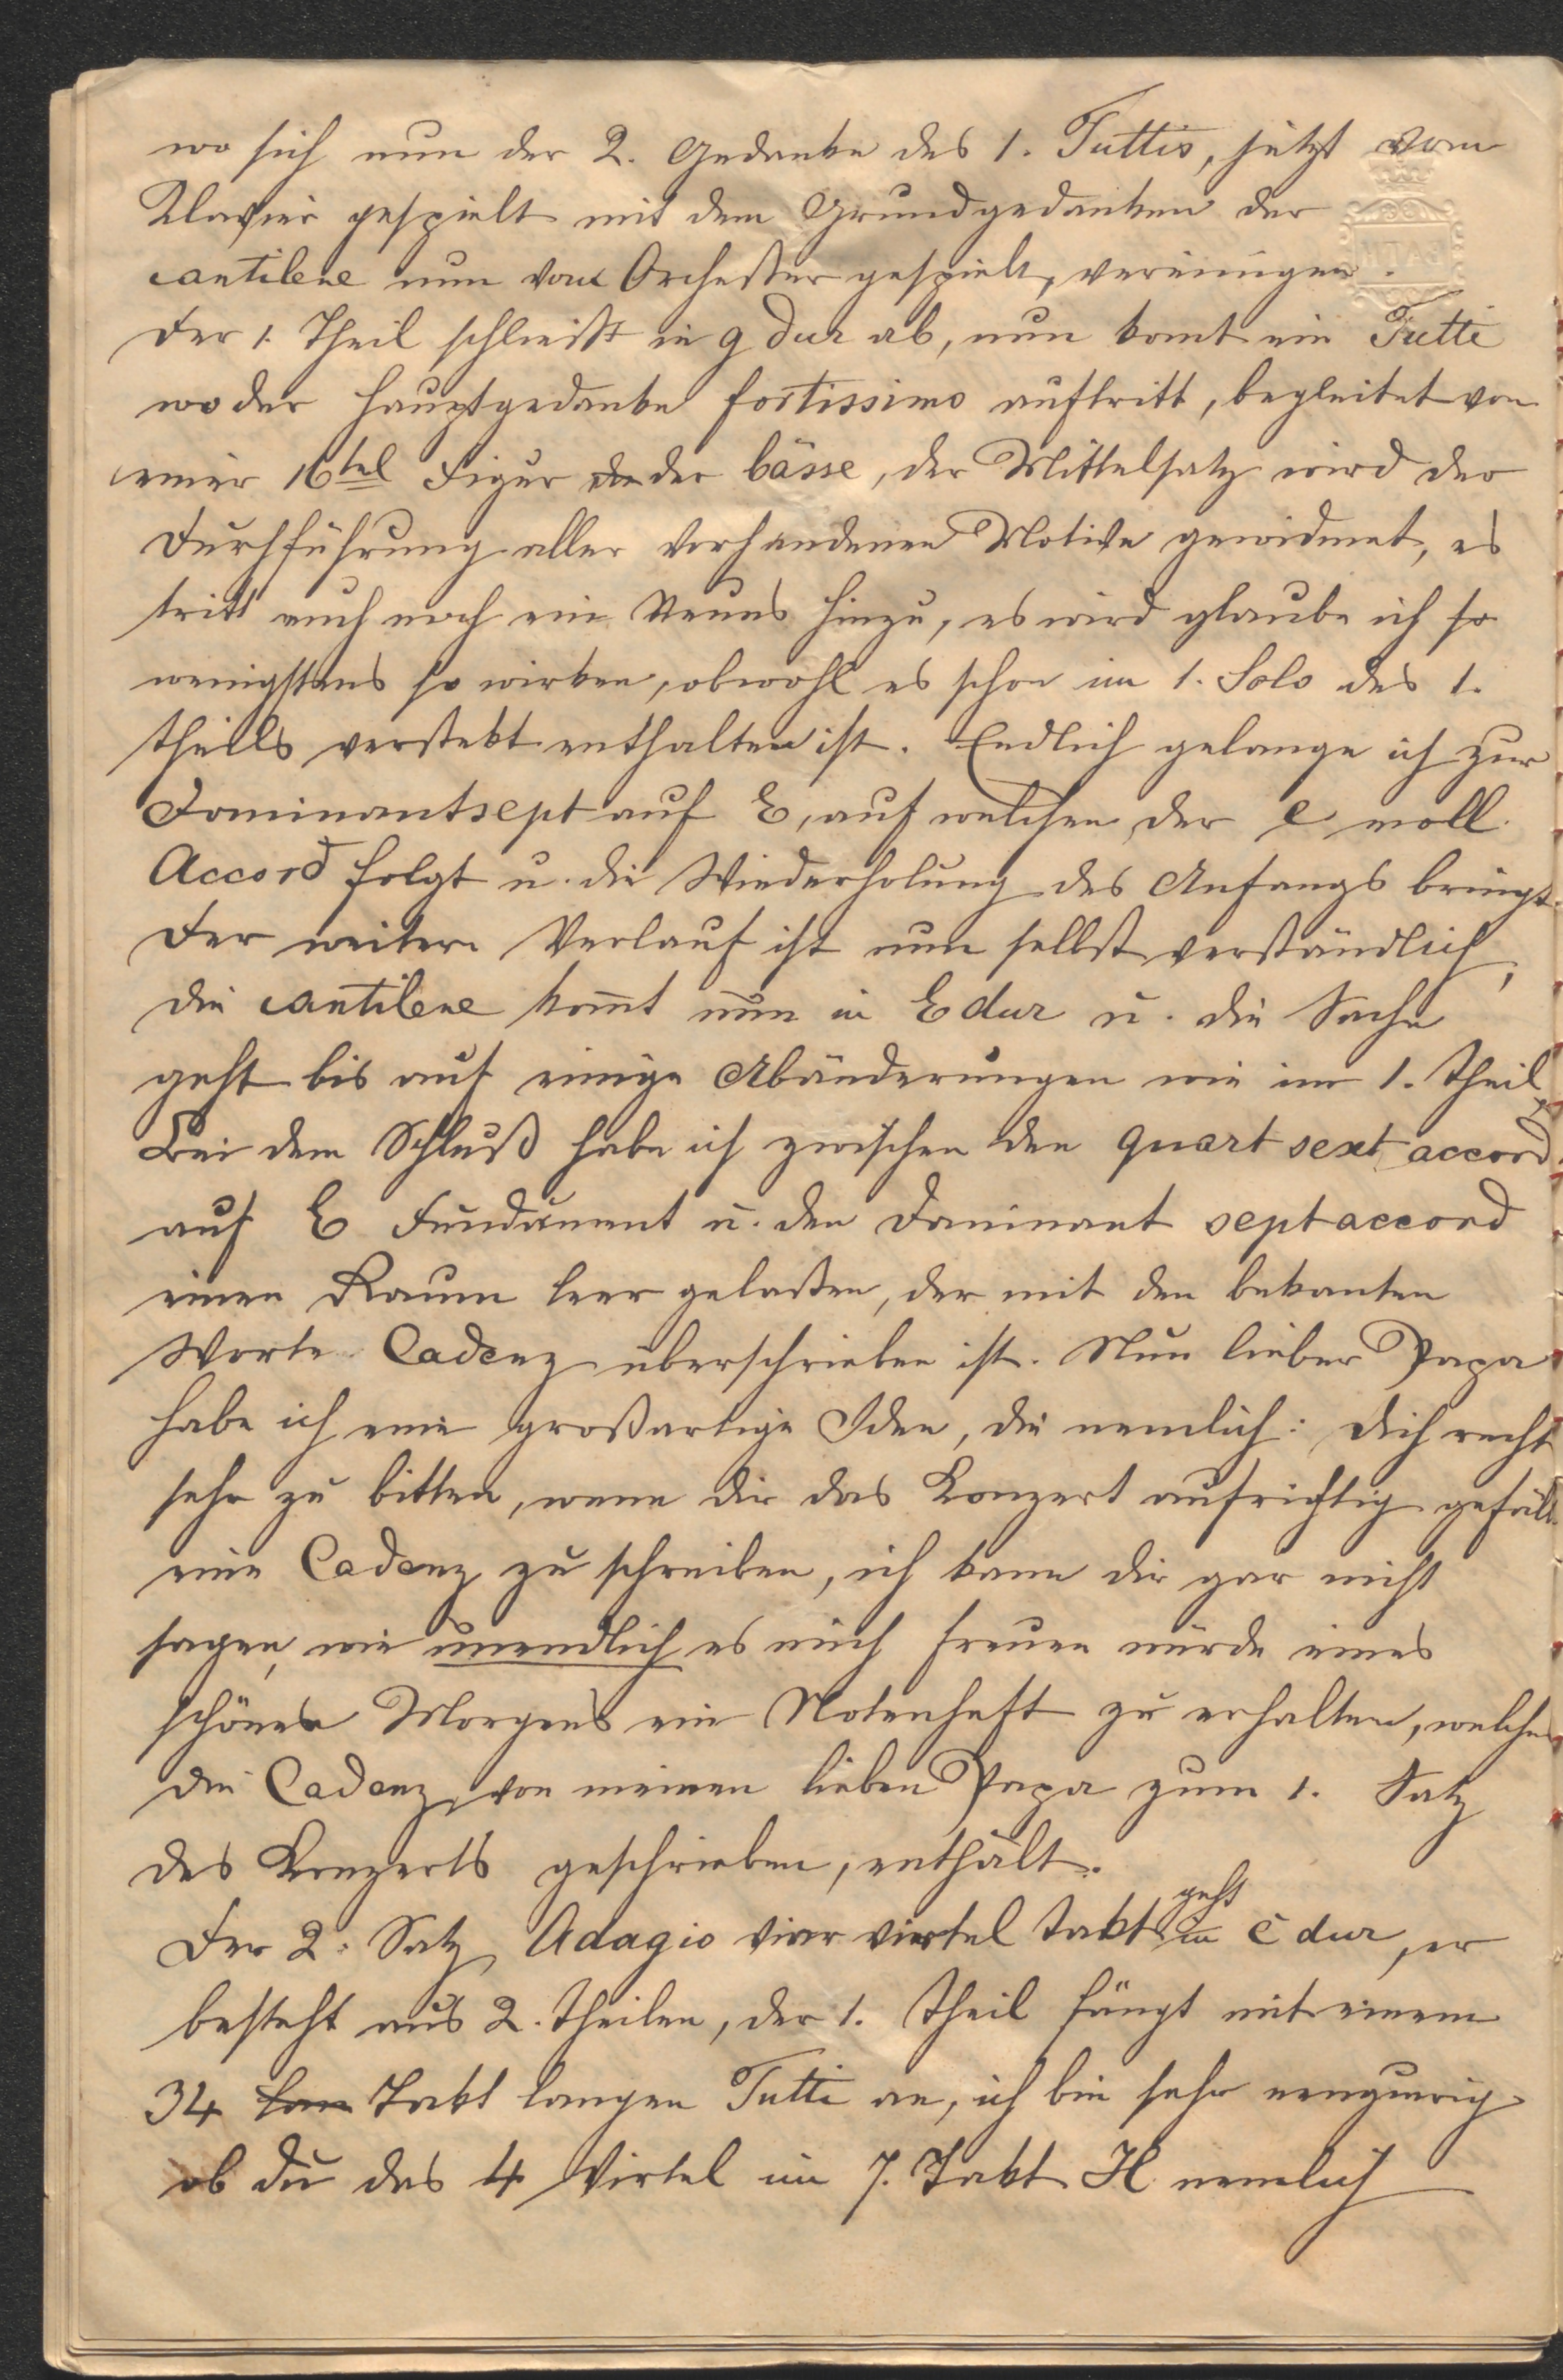 wo sich nun der 2. Gedanke des 1. Tuttis, jetzt vom
Klavier gespielt mit dem Grundgedanken der
cantilene nun vom Orchester gespielt, vereinigen.
Der 1. Theil schließt in g dur ab, nun komt ein Tutti
wo der Hauptgedanke fortissimo auftritt, begleitet von
einer 16tel Figur der bässe, der Mittelsatz wird der
Durchführung aller vorhandenen Motive gewidmet, es
tritt auch noch ein Neues hinzu, es wird glaube ich so
wenigstens so wirken, obwohl es schon im 1. Solo des 1.
Theils verstekt enthalten ist. Endlich gelange ich zur
Dominantsept auf E, auf welchen der e moll
Accord folgt u. die Wiederholung des Anfangs bringt.
Der weitere Verlauf ist nun selbst verständlich,
die cantilene komt nun in E dur u. die Sache
geht bis auf einige Abänderungen wie im 1. Theil
Bei dem Schluß habe ich zwischen den quart sext accord
auf E Fundament u. den Dominant septaccord
einen Raum leer gelaßen, der mit den bekanten
Worte Cadenz überschrieben ist. Nun lieber Papa
habe ich eine großartige Idee, die nemlich: dich recht
sehr zu bitten, wenn dir das Konzert aufrichtig gefält
eine Cadenz zu schreiben, ich kann dir gar nicht
sagen, wie unendlich es mich freuen würde eines
schönen Morgens ein Notenheft zu erhalten, welches
die Cadenz, von meinen lieben Papa zum 1. Satz
des Konzerts geschrieben, enthält.
Der 2. Satz Adagio vier viertel Takt geht in c dur, er
besteht aus 2. Theilen, der 1. Theil fängt mit einem
34 Takt langen Tutti an, ich bin sehr neugierig
ob du das 4 Virtel im 7. Takt H nemlich